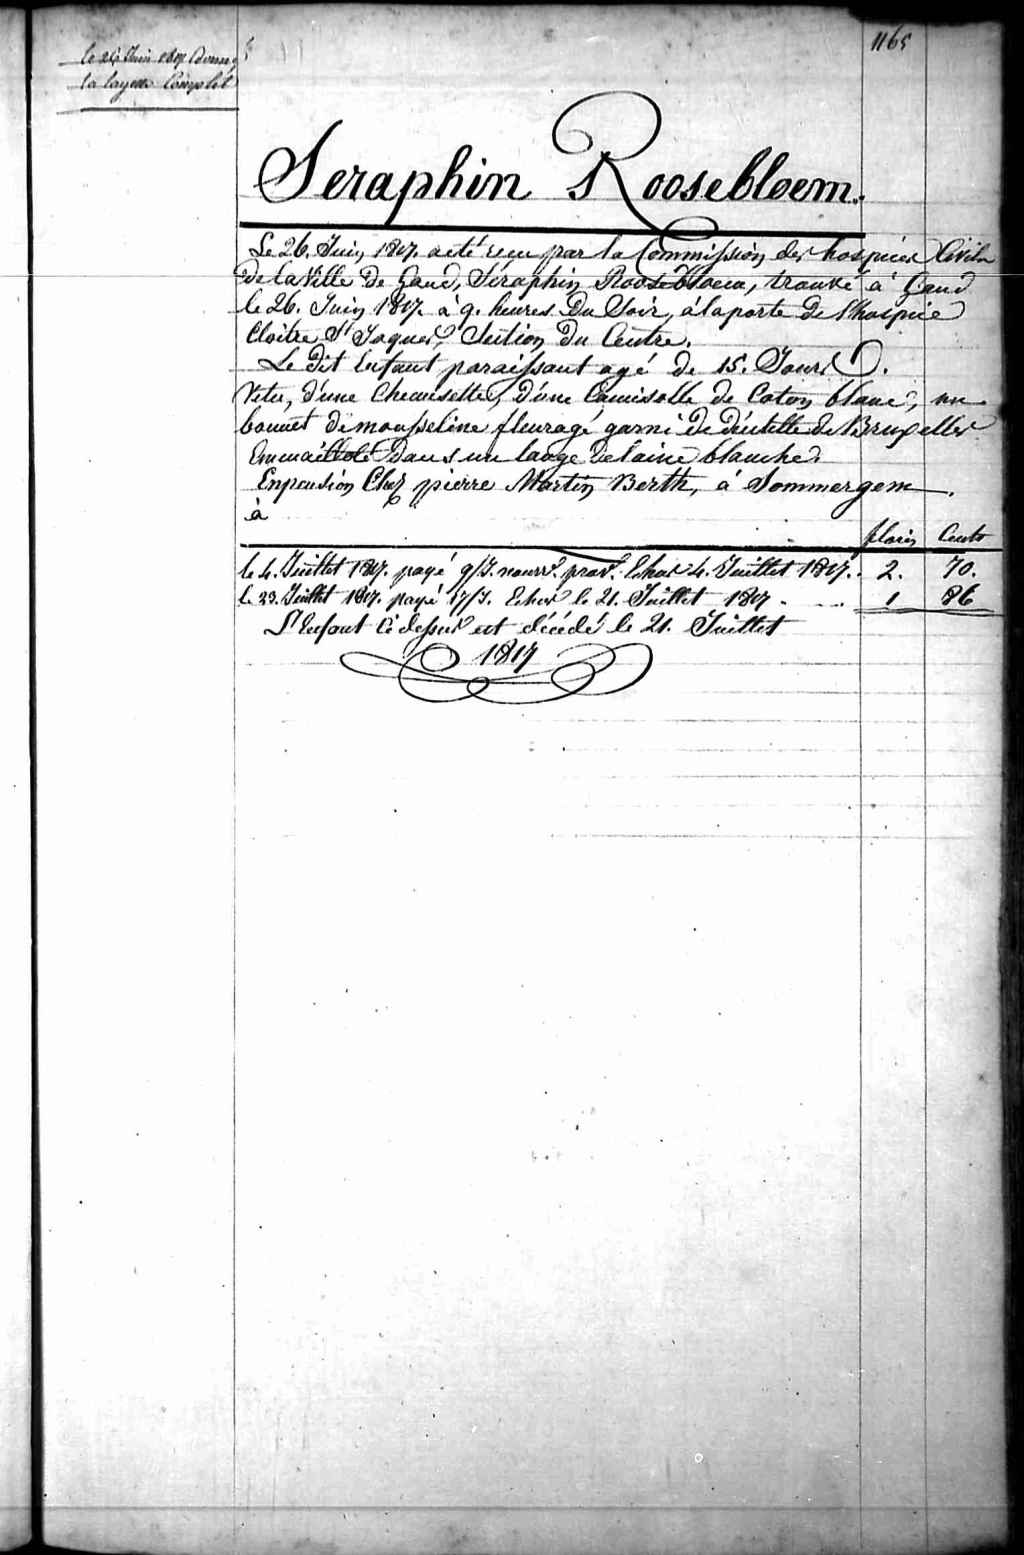 1165
le 24 Juin 1817 Donné
la layette Complèt
Seraphin Roosebloem.
Le 26. Juin 1817. a eté reçu par la Commission des hospices Civils
de la Ville de Gand, Séraphin Roosebloem, trouvé à Gand
le 26. Juin 1817. à 9. heures Du Soir, à la porte de l'hospice
Cloître St Jaques, Section Du Centre.
Le Dit Enfant paraissant agé de 15. Jours.
Vetu, d'une Chemisette, d'une Camisolle de Coton blanc, un
bonnet de mousseline fleuragé garni de déntelle de Bruxelles
Emmaillote Dans un lange de laine blanche.
En pension Chez pierre Martin Berth, à Sommergem.
à
florin Cents
le 4. Juillet 1817. payé 9/J. nourr. prov. Echus 4. Juillet 1817. 2. 70.
le 23. Juillet 1817. payé 17/J. Echus le 21. Juillet 1817 . . . . 1 86
L'Enfant Cidessus est décédé le 21. Juillet
1817